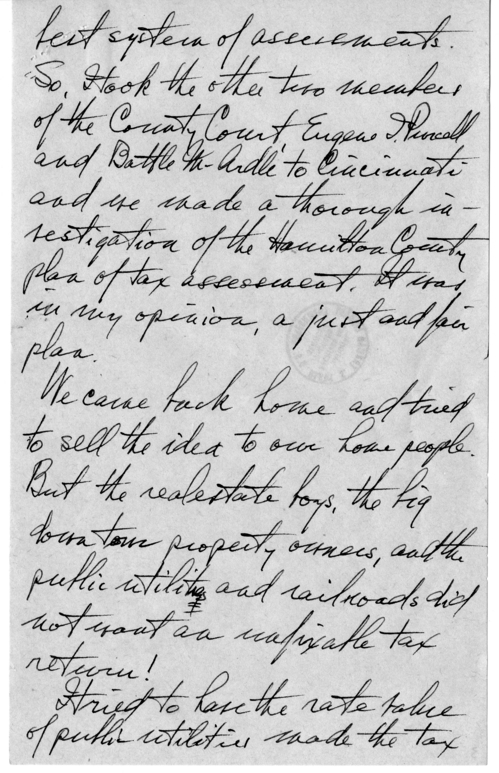 best system of assessments.
So, I took the other two members
of the County Court, Eugene I. Purcell
and Battle McArdle to Cincinnati
and we made a thorough in-
vestigation of the Hamilton County
plan of tax assessment. It was
in my opinion, a just and fair
plan.
We came back home and tried
to sell the idea to our home people.
But the real estate boys, the big
down town property owners, and the
public utilities and railroads did
not want an unfixable tax
return!
I tried to have the rate value
of public utilities made the tax